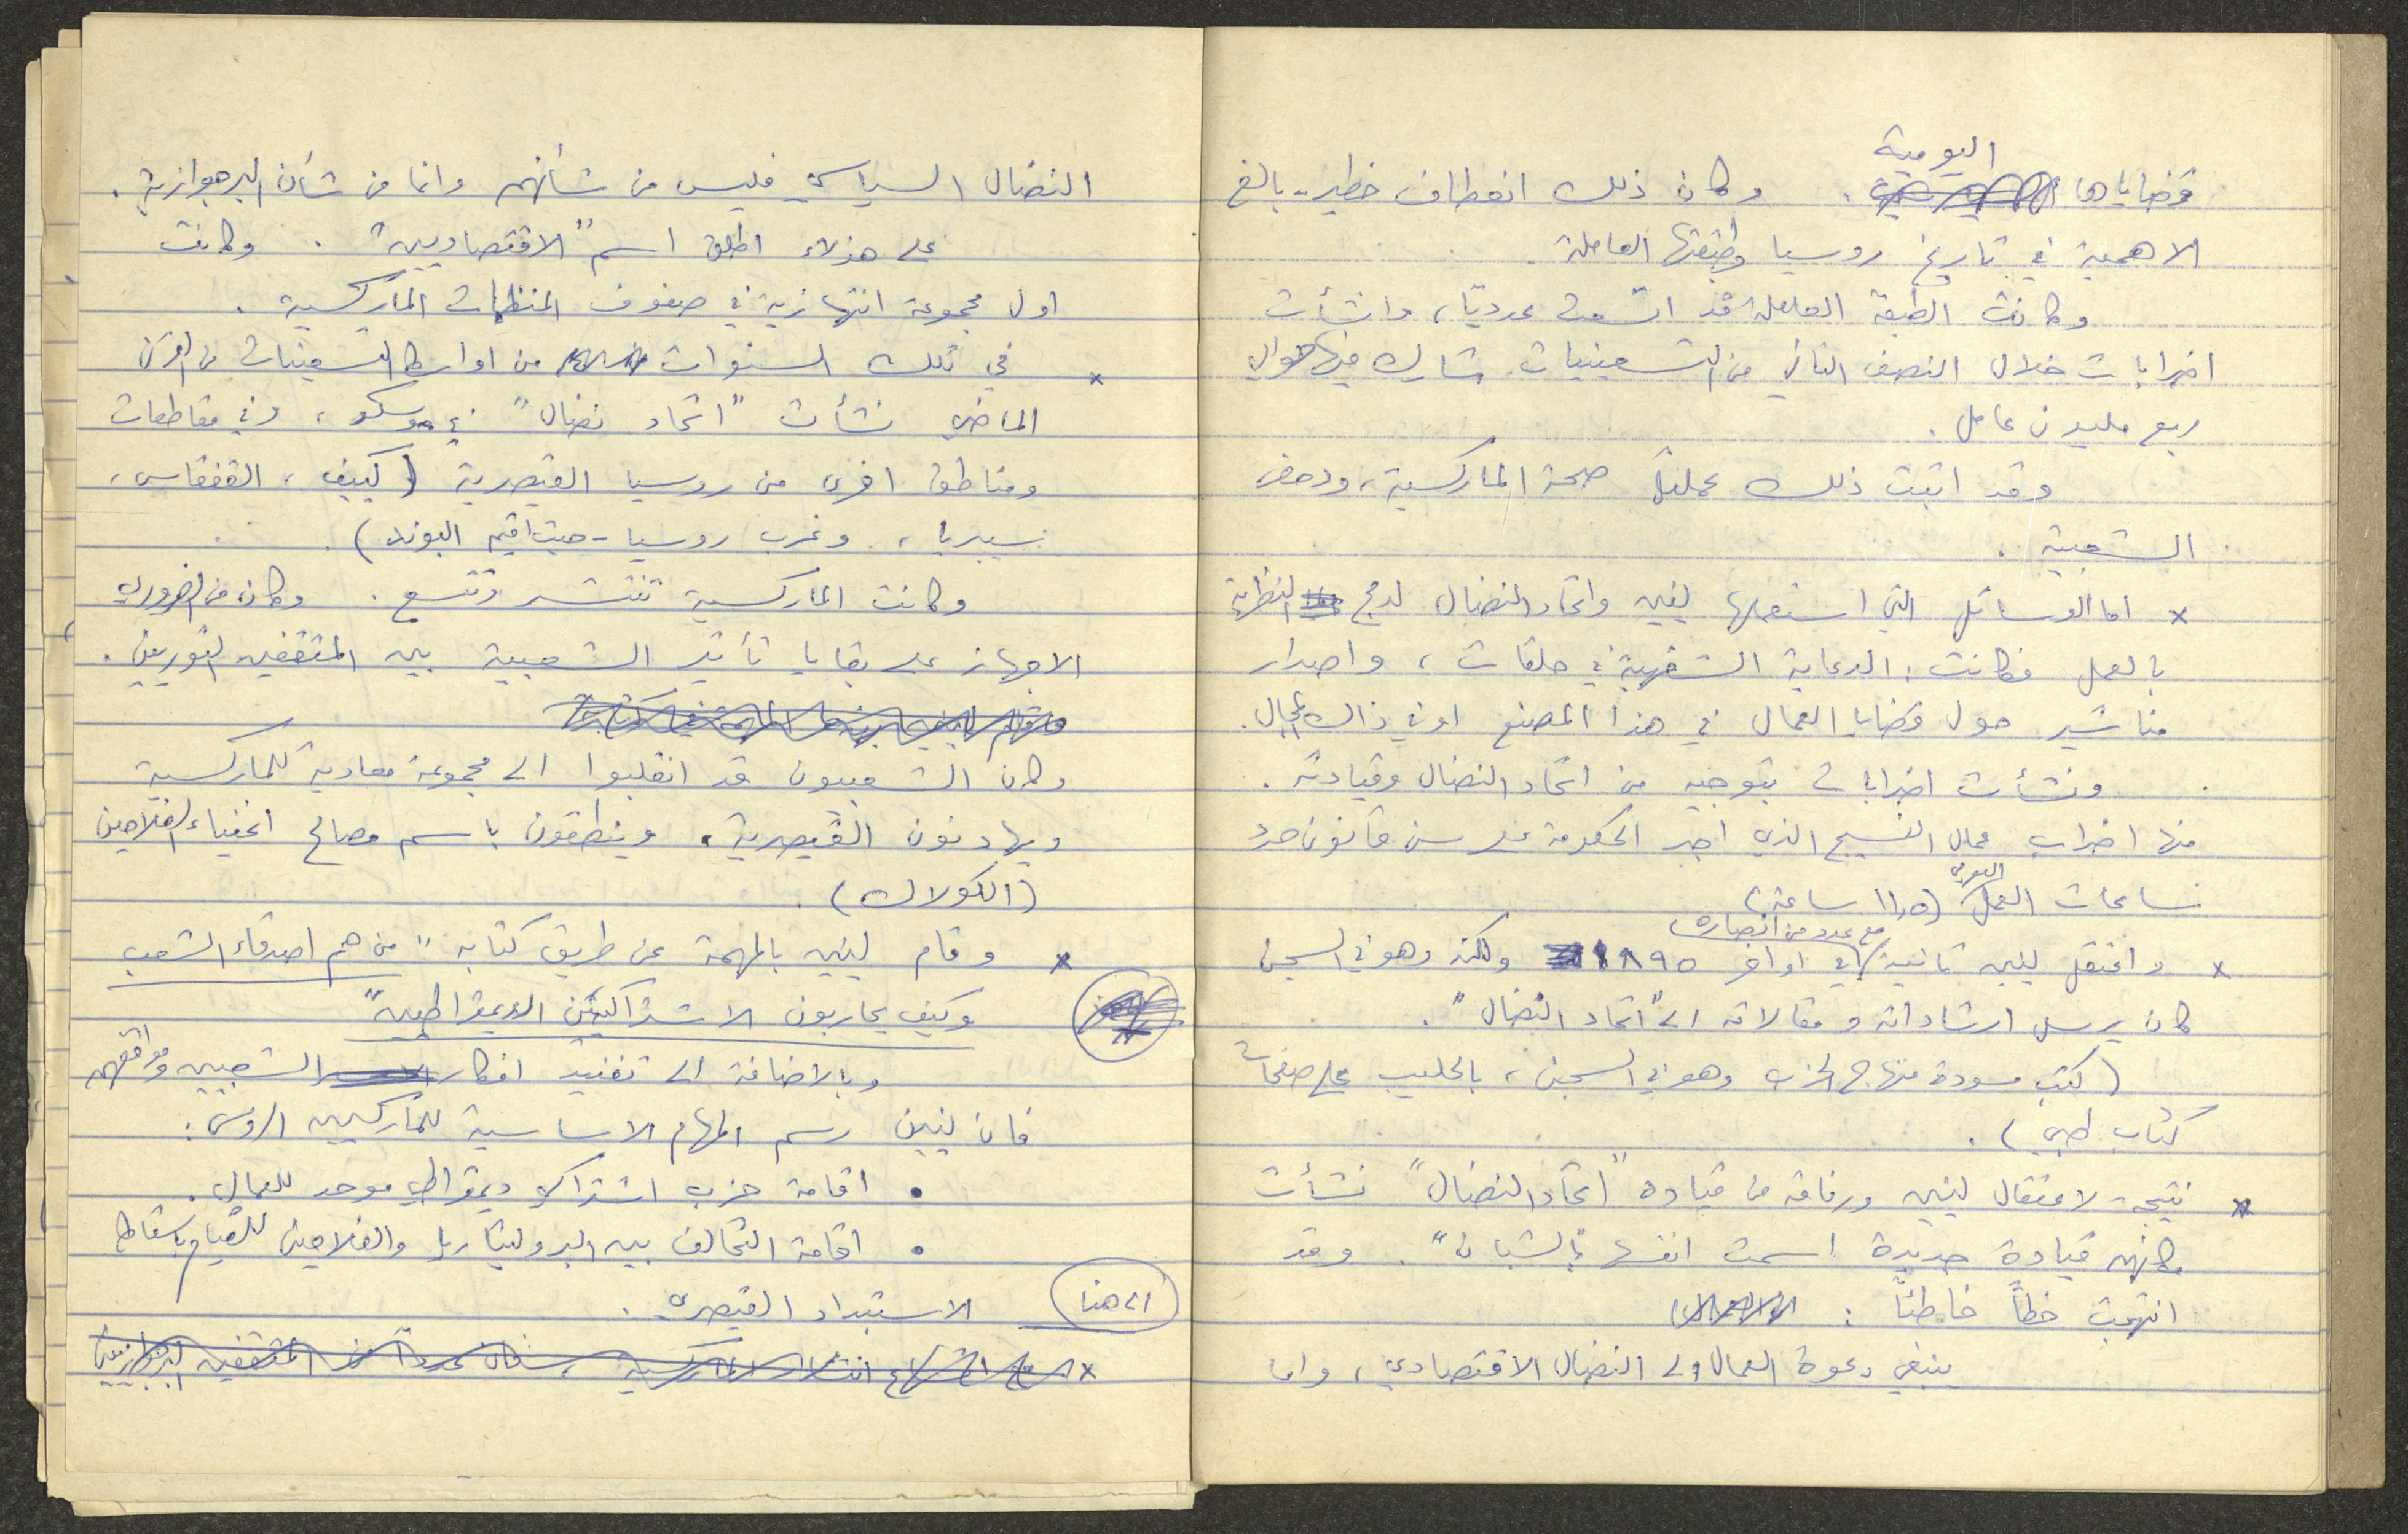 اليومية
قضاياها . وكان ذلك انعطاف خطير - بالغ
الاهمية في تاريخ روسيا وطبقتها العاملة .
وكانت الطبقة العاملة قد اتسعت عدديًا ، وانشأت
اضرابات خلال النصف الثاني من التسعينيات شارك فيها حوالي
ربع مليون عامل .
وقد اثبت ذلك عمليًا صحة الماركسية ، ودحض
الشعبية .
x اما الوسائل التي استعملها لينين واتحاد النضال لدمج النظرية
بالعمل فكانت : الدعاية الشفهية في حلقات ، واصدار
مناشير حول قضايا العمال في هذا المصنع او في ذاك المجال .
ونشأت اضرابات بتوجيه من اتحاد النضال وقيادته .
منها اضراب عمال النسيج الذي اجبر الحكومة على سن قانون حدد
ساعات العمل اليومي (١١٫٥ ساعة)
مع عدد من انصاره
x واعتقل لينين ثانية في اواخر ١٨٩٥ ولكنه وهو في السجن
كان يرسل ارشاداته ومقالاته الى "اتحاد النضال" .
(كتب مسودة منهاج الحزب وهو في السجن ، بالحليب على صفحات
كتاب طبي) .
x نتيجة - لاعتقال لينين ورفاقه من قيادة "اتحاد النضال" نشأت
مكانهم قيادة جديدة اسمت انفسها "بالشبان" . وقد
انتهجت خطًا خاطئًا :
ينبغي دعوة العمال الى النضال الاقتصادي ، واما
النضال السياسي فليس من شأنهم وانما من شأن البرجوازية .
على هؤلاء اطلق اسم "الاقتصاديين" . وكانت
اول مجموعة انتهازية في صفوف المنظمات الماركسية .
x في تلك السنوات من اواسط التسعينات من القرن
الماضي نشأت "اتحاد نضال" في موسكو ، وفي مقاطعات
ومناطق اخرى من روسيا القيصرية (كييف ، القفقاس ،
سيبريا ، وغرب روسيا - حيث اقيم البوند) .
وكانت الماركسية تنتشر وتتسع . وكان من الضروري
الاجهاز على بقايا تأثير الشعبية بين المثقفين الثوريين .
وكان الشعبيون قد انقلبوا الى مجموعة معادية للماركسية
ويهادنون القيصرية ، وينطقون باسم مصالح اغنياء الفلاحين
(الكولاك) .
x وقام لينين بالمهمة عن طريق كتابه "من هم اصدقاء الشعب
وكيف يحاربون الاشتراكيين الديمقراطيين"
وبالاضافة الى تفنيد افكار الشعبيين ومواقفهم
فان لينين رسم المهام الاساسية للماركسيين الروس :
• اقامة حزب اشتراكي ديمقراطي موحد للعمال .
• اقامة التحالف بين البروليتاريا والفلاحين للقيام باسقاط
الاستبداد القيصري .
الى هنا